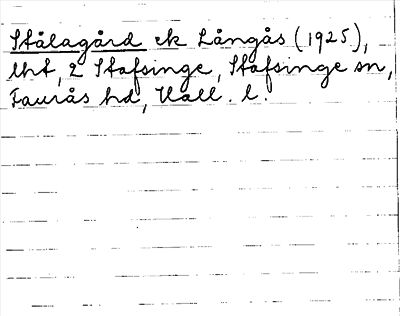 Stålagård ek Långås (1925),
lht, 2 Stafsinge, Stafsinge sn,
Faurås hd, Hall. l.